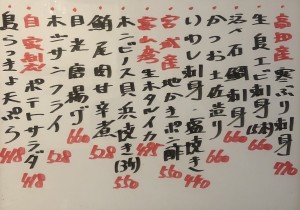 高知産 寒ぶり刺身 770
生ボタンエビ刺身(2本) 660
活〆石鯛刺身 660
かつお土佐造り 660
いわし刺身・塩焼き 440
宮城産 地かきポン酢
富山産 生ホタルイカ 495
ホンビノス貝浜焼き(3ケ) 550
鮪尾肉甘辛煮 528
目光唐揚げ 660
ホワサンフライ 528
自家製 ポテトサラダ 418
島らっきょ天ぷら 418